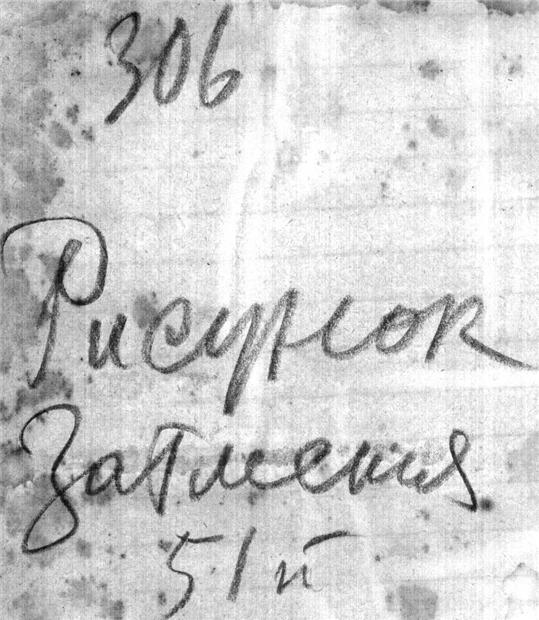 306
Рисунок
Затмения
51й